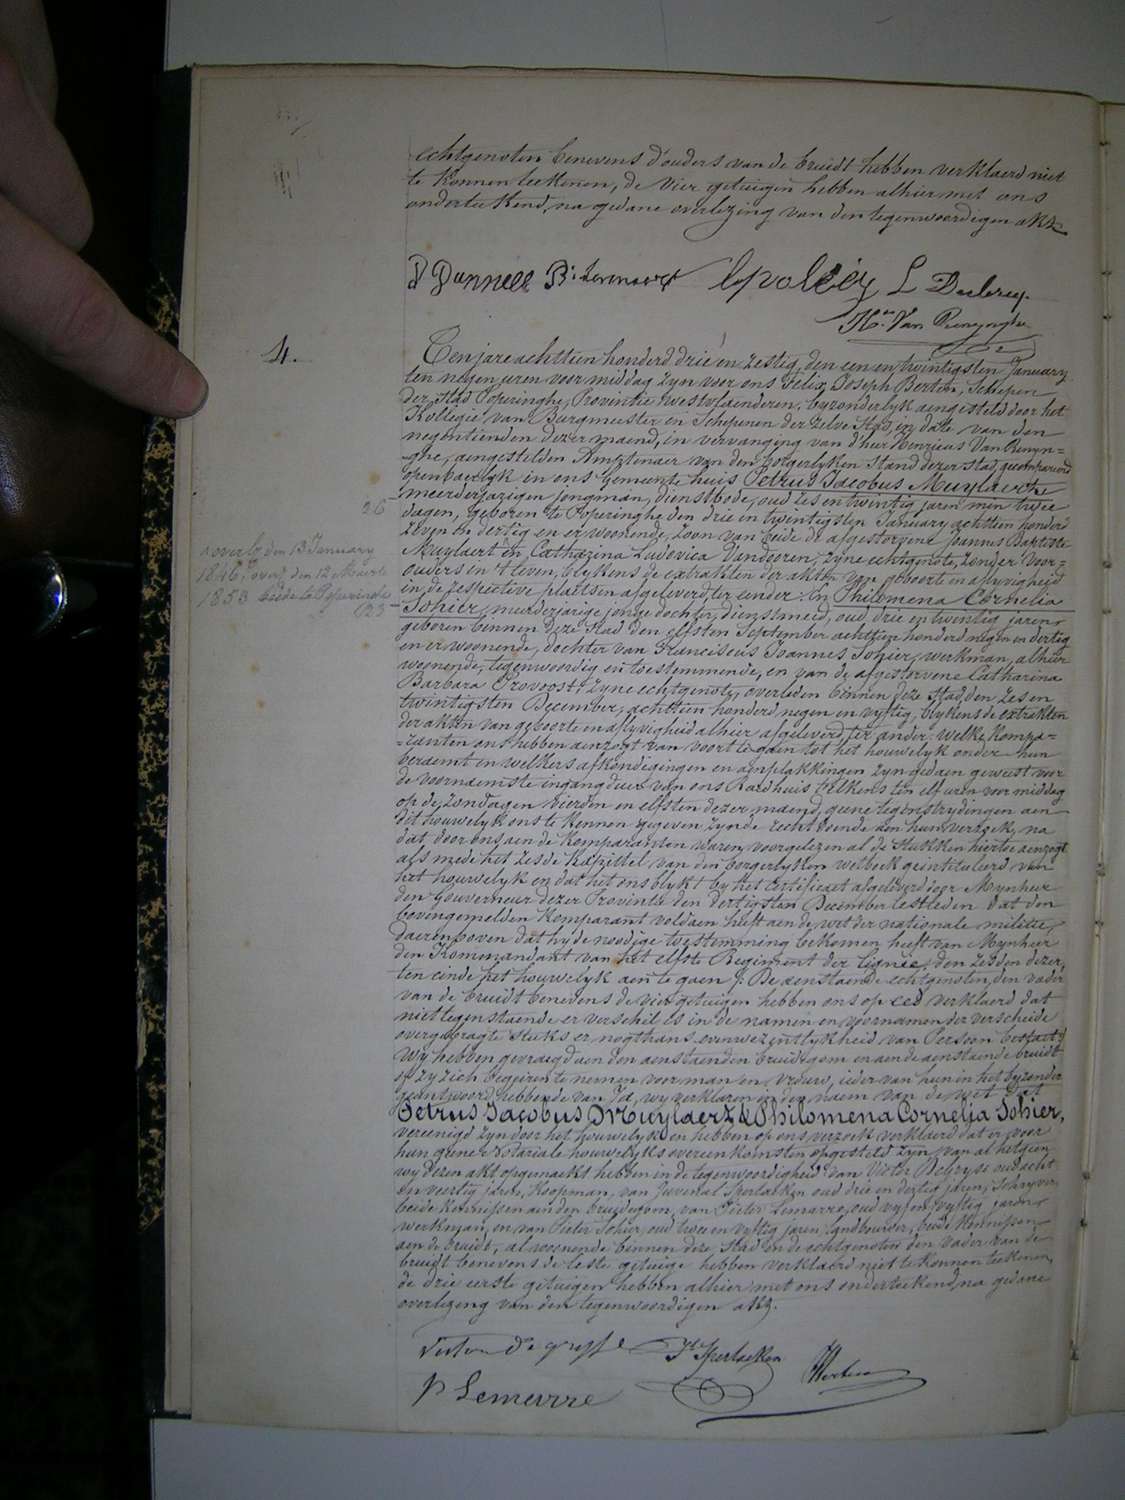 echtgenoten benevens d'ouders van de bruidt hebben verklaerd niet
te konnen teekenen, de vier getuigen hebben alhier met ons
onderteekend, na gedane overlezing van den tegenwoordigen akt
L Declercq
Hri Van Renynghe
4.
Ten jare achttien honderd drie en zestig, den een en twintigsten January
ten negen uren voor middag zyn voor ons Felix Joseph Berten, Schepen
der stad Poperinghe, Provintie Westvlaenderen, byzonderlyk aengesteld door het
Kollegie van Burgmeester en Schepenen der zelve stad, in date van den
negentienden dezer maend, in vervanging van d'heer Henricus Van Renyn=
=ghe, aengestelden Amptenaer van den borgerlyken stand dezer stad, gecompareerd
openbaerlyk in ons Gemeente huis Petrus Jacobus Muylaert
meerderjarigen jongman, dienstbode, oud zes en twintig jaren min twee
26
dagen, geboren te Poperinghe den drie en twintigsten January achttien honderd
zeven en dertig en er woonende, zoon van beide de afgestorvene Joannes Baptiste
overl. den 13 January
Muylaert en Catharina Ludovica Vandooren, zyne echtgenote, zonder voor=
1846, overl. den 12 Maerte
ouders in 't leven, blykens de extrakten der akten van geboorte en aflyvigheid
1853 beide te Poperinghe
in de respective plaetsen afgeleverd, ter eender. En Philomena Cornelia
(23
Sohier, meerderjarige jonge dochter, dienstmeid, oud drie en twintig jaren
geboren binnen deze stad den elfsten September achttien honderd negen en dertig
en er woonende, dochter van Franciscus Joannes Sohier, werkman, alhier
woonende, tegenwoordig en toestemmende, en van de afgestorvene Catharina
Barbara Provoost, zyne echtgenote, overleden binnen deze stad den zes en
twintigsten December, achttien honderd negen en vyftig, blykens de extrakten
der akten van geboorte en aflyvigheid alhier afgeleverd, ter ander: welke kompa=
=ranten ons hebben aenzogt van voort te gaen tot het houwelyk onder hun
beraemt en welkers afkondigingen en aenplakkingen zyn gedaen geweest voor
de voornaemste ingangdeur van ons Raedhuis telkens ten elf uren voor middag
op de zondagen vierden en elfsten dezer maend, geene tegenstrydingen aen
dit houwelyk ons te kennen gegeven zynde recht doende aen hun verzoek, na
dat door ons aen de komparanten waren voorgelezen al de stukken hiertoe aenzogt
als mede het zesde kapittel van den borgerlyken wetboek geintituleerd van
het houwelyk en dat het ons blykt by het certificaet afgeleverd door Mynheer
den Gouverneur dezer Provintie den dertigsten December lestleden dat den
bovengemelden komparant voldaen heeft aen de wet der nationale militie,
daerenboven dat hy de noodige toestemming bekomen heeft van Mynheer
den Kommandant van het elfste Regiment der Lignie, den zesden dezer,
ten einde het houwelyk aen te gaen. De aenstaende echtgenoten, den vader
van de bruidt benevens de vier getuigen hebben ons op eed verklaerd dat
niettegenstaende er verschil is in de namen en voornamen der verscheide
overgebragte stuks er nogthans evenwezentlykheid van Persoon bestaet
Wy hebben gevraegd aen den aenstaenden bruidegom en aen de aenstaende bruidt
of zy zich begeiren te nemen voor man en vrouw, ieder van hun in het byzonder
geantwoord hebbende van Ja, wy verklaren in den naem van de wet dat
Petrus Jacobus Muylaert & Philomena Cornelia Sohier,
vereenigd zyn door het houwelyk en hebben op ons verzoek verklaerd dat er voor
hun geene Notariale houwelyks overeenkomsten opgesteld zyn van al hetgeen
wy dezen akt opgemaekt hebben in de tegenwoordigheid van Victor Degryse oud acht
en veertig jaren, Koopman, van Juvenal Sperlaeken oud drie en dertig jaren, Schryver,
beide kennissen aen den bruidegom, van Pieter Lemarre, oud vyf en vyftig jaren
werkman, en van Pieter Sohier, oud twee en vyftig jaren, landbouwer, beide kennissen
aen de bruidt, al woonende binnen deze stad en de echtgenoten den vader van de
bruidt benevens de leste getuige hebben verklaerd niet te konnen teekenen,
de drie eerste getuigen hebben alhier met ons onderteekend, na gedane
overlezing van den tegenwoordigen akt.
Victor De gryse
Jl Sperlaeken
FBerten
P Lemarre